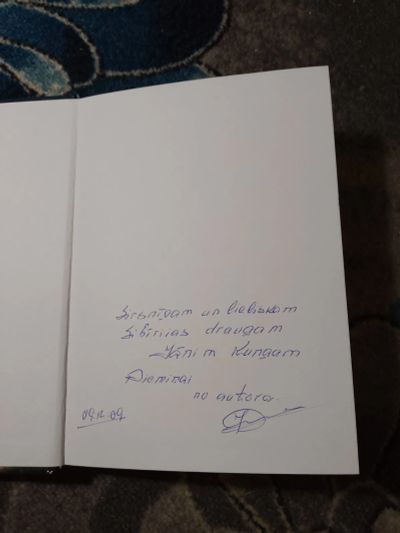 Sirsnīgam un lieliskam
Sibīrijas draugam
Jānim Kungam
Piemiņai
no autora.
09.12.09.